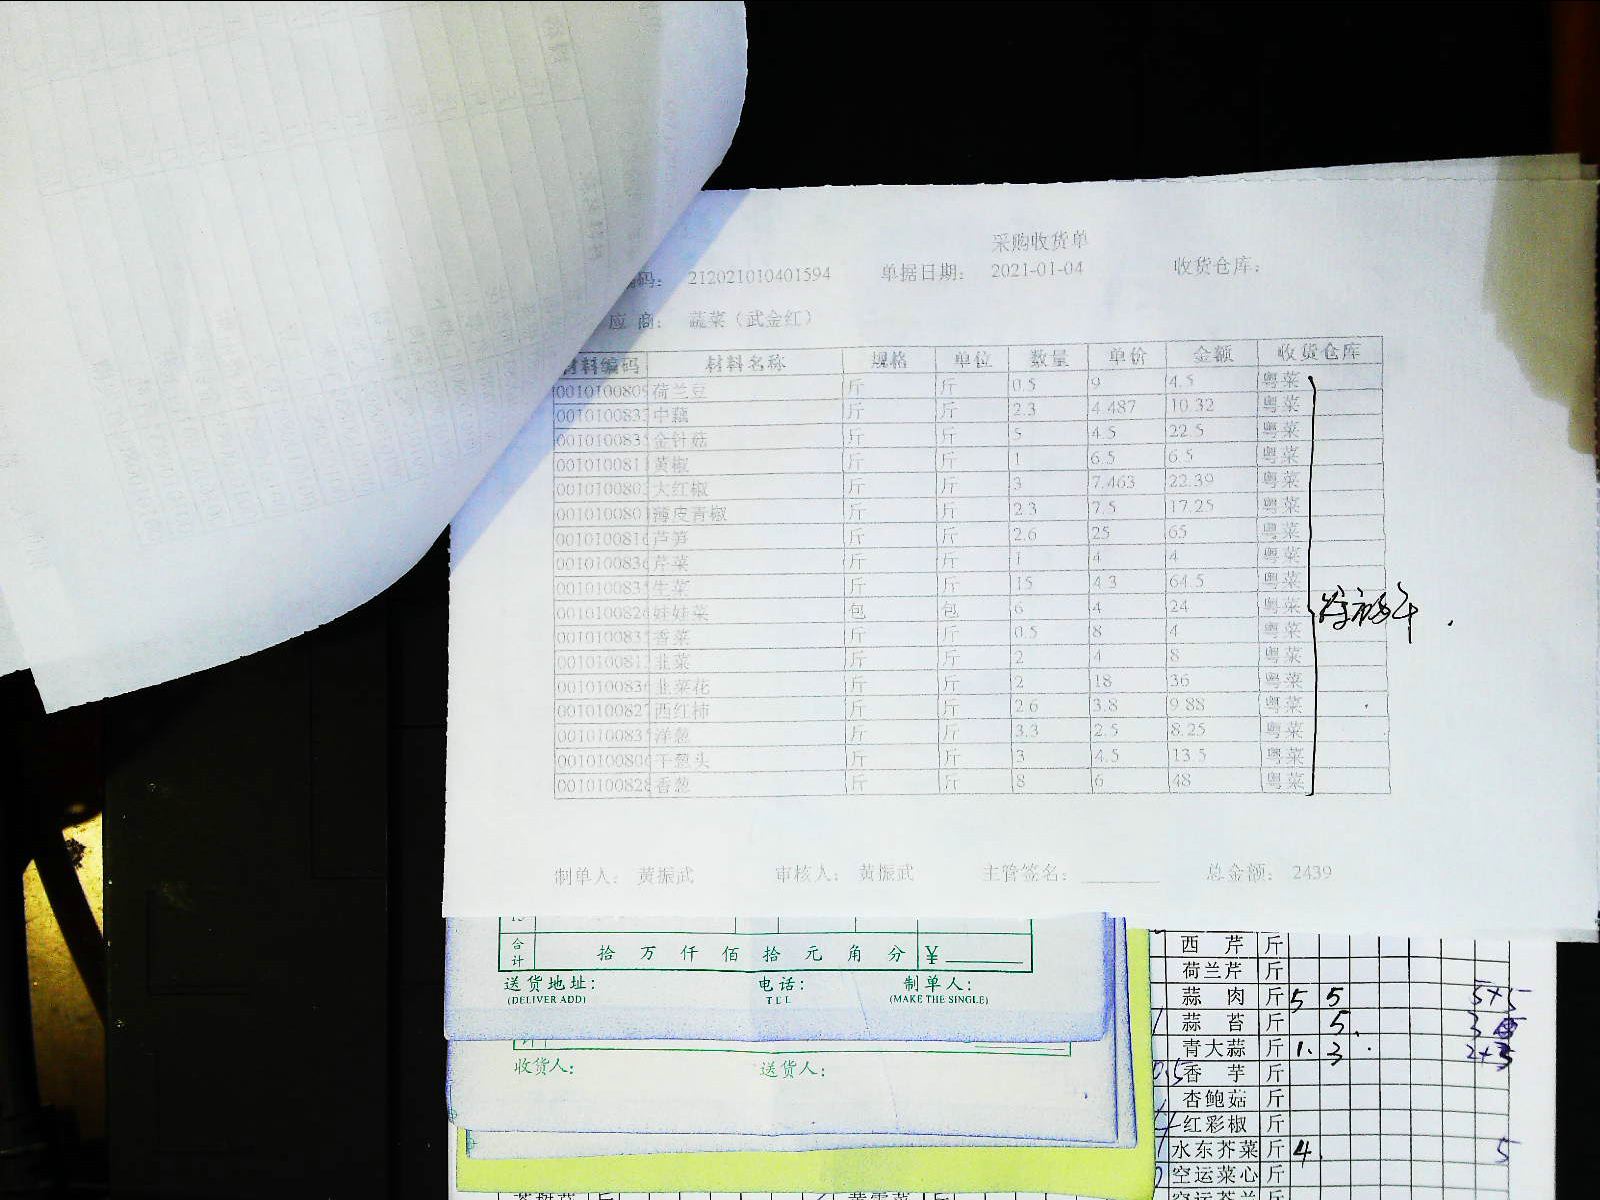 采购收货单
码： 212021010401594 单据日期： 2021-01-04 收货仓库：
应 商： 蔬菜（武金红）
材料编码 材料名称 规格 单位 数量 单价 金额 收货仓库
001010080 荷兰豆 斤 斤 0.5 9 4.5 粤菜
001010083 中藕 斤 斤 2.3 4.487 10.32 粤菜
001010083 金针菇 斤 斤 5 4.5 22.5 粤菜
001010081 黄椒 斤 斤 1 6.5 6.5 粤菜
001010080 大红椒 斤 斤 3 7.463 22.39 粤菜
001010080 薄皮青椒 斤 斤 2.3 7.5 17.25 粤菜
001010081 芦笋 斤 斤 2.6 25 65 粤菜
001010083 芹菜 斤 斤 1 4 4 粤菜
001010083 生菜 斤 斤 15 4.3 64.5 粤菜
001010082 娃娃菜 包 包 6 4 24 粤菜
001010083 香菜 斤 斤 0.5 8 4 粤菜
001010081 韭菜 斤 斤 2 4 8 粤菜
001010083 韭菜花 斤 斤 2 18 36 粤菜
001010082 西红柿 斤 斤 2.6 3.8 9.88 粤菜
001010083 洋葱 斤 斤 3.3 2.5 8.25 粤菜
001010080 干葱头 斤 斤 3 4.5 13.5 粤菜
001010082 香葱 斤 斤 8 6 48 粤菜
制单人： 黄振武 审核人： 黄振武 主管签名： 总金额： 2439
合计 拾 万 仟 佰 拾 元 角 分 ¥
送货地址： 电话： 制单人：
(DELIVER ADD) TEL (MAKE THE SINGLE)
收货人： 送货人：
西 芹 斤
荷兰芹 斤
蒜 肉 斤 5 5 5+5
蒜 苔 斤 5. 3
青大蒜 斤 1. 3
0.5 香 芋 斤
杏鲍菇 斤
红彩椒 斤
水东芥菜 斤 4. 5
空运菜心 斤